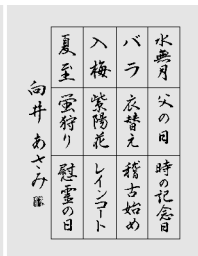 水無月 父の日 時の記念日
バラ 衣替え 稽古始め
入梅 紫陽花 レインコート
夏至 蛍狩り 慰霊の日
向井あさみ